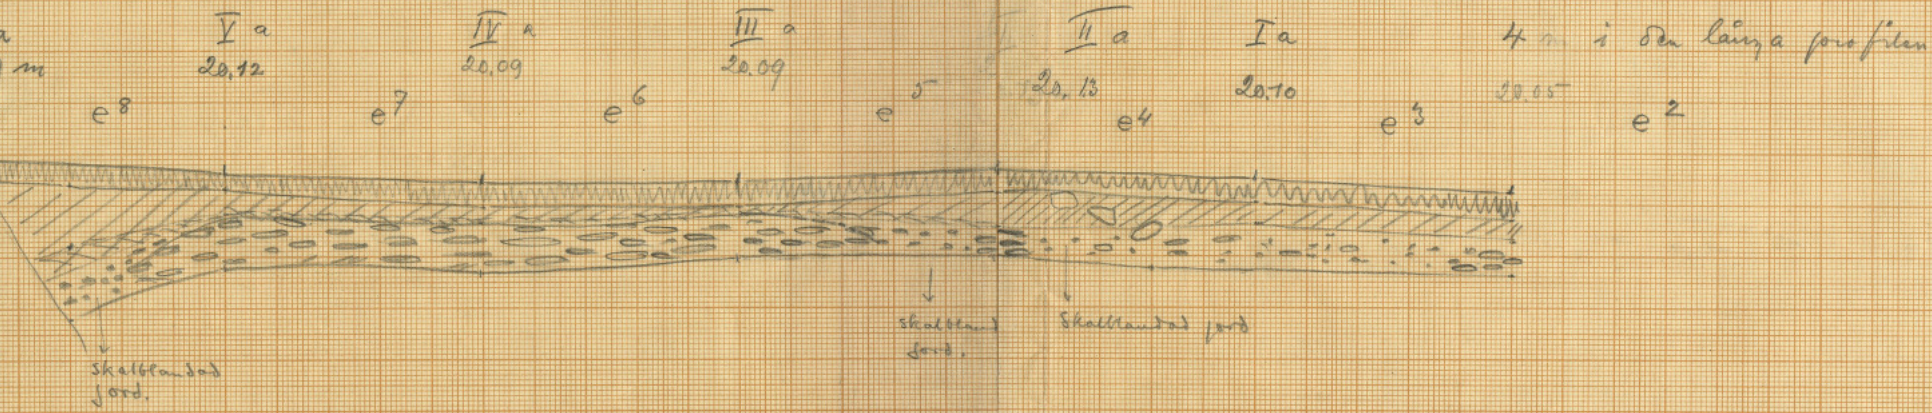 V a IV a III a II a I a 4 m i den långa profilen
m 20,12 20,09 20.09 20,13 20.10 20.05
e8 e7 e6 e5 e4 e3 e2
skalbland jord.
Skalblandad jord
Skalblandad
jord.